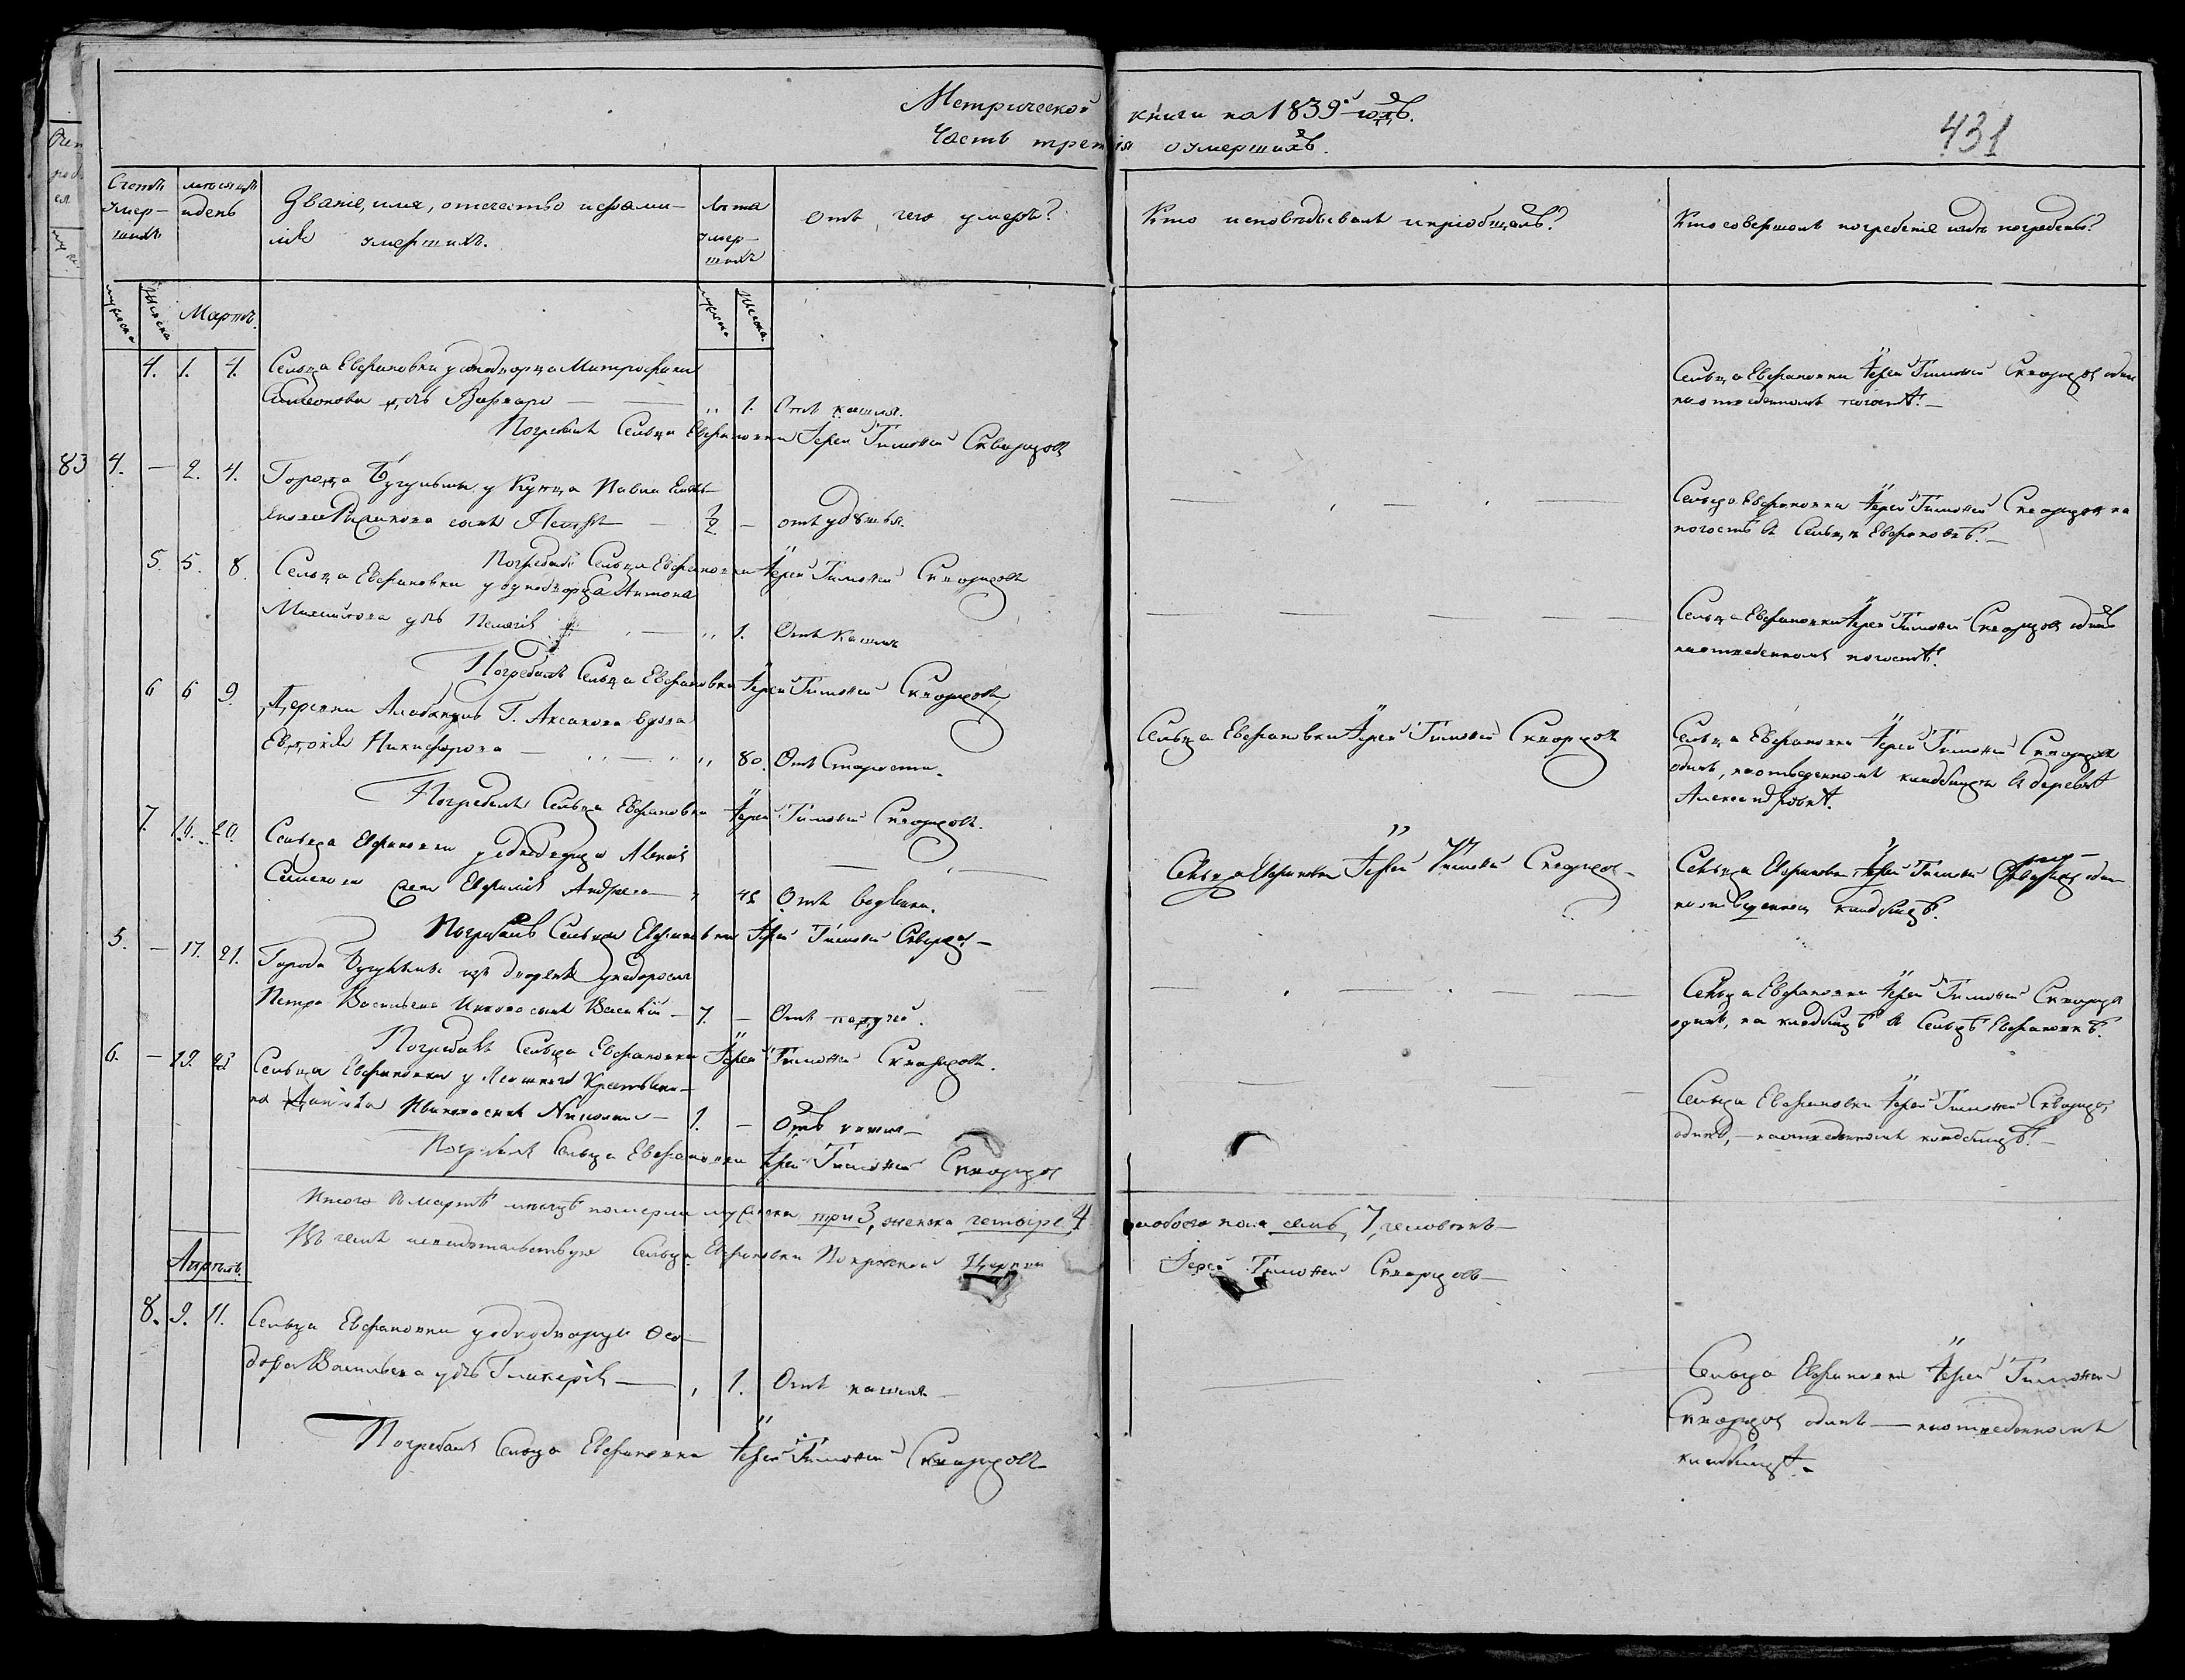 Метрической книги на 1839й годъ.
Часть третія о умершихъ.
431
Счетъ умер-шихъ
мѣсяцъ и день
Званіе, имя, отчество и фами-
лія умершихъ.
Лѣта умер-шихъ
Отъ чего умеръ?
Кто исповѣдывалъ и пріобщалъ?
Кто совершалъ погребеніе и гдѣ погребены?
мужеска
женска
Мартъ.
мужеска
женска
4. 1. 4. Сельца Евфановки у однодворца Митрофана
Симеонова дочь Варвара — „ 1. Отъ кашля.
Сельца Евфановки Іерей Тимофей Скворцовъ одинъ
на отведенномъ погостѣ.
Погребалъ Сельца Евфановки Іерей Тимофей Скворцовъ
83
4. — 2. 4. Города Бугульмы у Купца Павла
сынъ Петръ — 1/2 —
Сельца Евфановки Іерей Тимофей Скворцовъ на
погостѣ въ Сельцѣ Евфановкѣ.
Погребалъ Сельца Евфановки Іерей Тимофей Скворцовъ
5. 5. 8. Сельца Евфановки у однодворца Антона
дочь Пелагія „ 1. Отъ Кашля
Сельца Евфановки Іерей Тимофей Скворцовъ одинъ
на отведенномъ погостѣ.
Погребалъ Сельца Евфановки Іерей Тимофей Скворцовъ
6 6 9. Деревни Г. Аксакова вдова
Евдокія Никифорова — „ 80. Отъ Старости.
Сельца Евфановки Іерей Тимофей Скворцовъ
Сельца Евфановки Іерей Тимофей Скворцовъ
одинъ, на отведенномъ кладбищѣ въ деревнѣ
Александровкѣ.
Погребалъ Сельца Евфановки Іерей Тимофей Скворцовъ.
7. 20. Сельца Евфановки у однодворца Алексѣя
Симеонова Евфимія Андреева — „ Отъ водяни.
Сельца Евфановки Іерей Тимофей Скворцовъ
Сельца Евфановки Іерей Тимофей Скворцовъ одинъ
на отведенномъ кладбищѣ.
Погребалъ Сельца Евфановки Іерей Тимофей Скворцовъ
5. — 17. 21. Города Бугульмы изъ дворянъ у недоросля
Петра Васильева сынъ Василій — 7. — Отъ падучей.
Сельца Евфановки Іерей Тимофей Скворцовъ
одинъ, на кладбищѣ въ Сельцѣ Евфановкѣ.
Погребалъ Сельца Евфановки Іерей Тимофей Скворцовъ.
6. — 19. Сельца Евфановки у Ясашного Крестьяни-
на Данила Иванова сынъ Николай — 1. — Отъ кашля
Сельца Евфановки Іерей Тимофей Скворцовъ
одинъ, — на отведенномъ кладбищѣ.
Погребалъ Сельца Евфановки Іерей Тимофей Скворцовъ
Итого въ мартѣ мѣсяцѣ померли мужеска три 3, женска четыре 4 и обоего пола семь, 7, человѣкъ —
Въ чемъ и свидѣтельствую Сельца Евфановки Покровской Церкви Іерей Тимофей Скворцовъ —
Апрѣль.
8. 9. 11. Сельца Евфановки у однодворца Фео-
дора Васильева дочь Гликерія — „ 1. Отъ кашля —
Сельца Евфановки Іерей Тимофей
Скворцовъ одинъ — на отведенномъ
кладбищѣ.
Погребалъ Сельца Евфановки Іерей Тимофей Скворцовъ